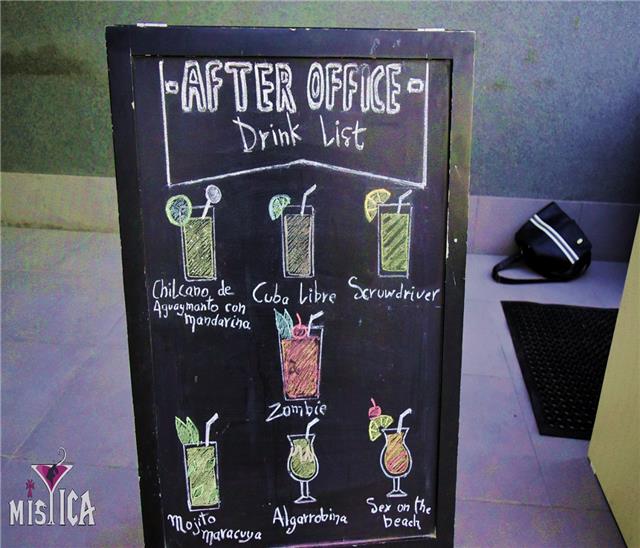 AFTER OFFICE
Drink List
Chilcano de
Aguaymanto con
mandarina
Cuba Libre
Scruwdriver
Zombie
Mojito
maracuya
Algarrobina
Sex on the
beach
MISTICA